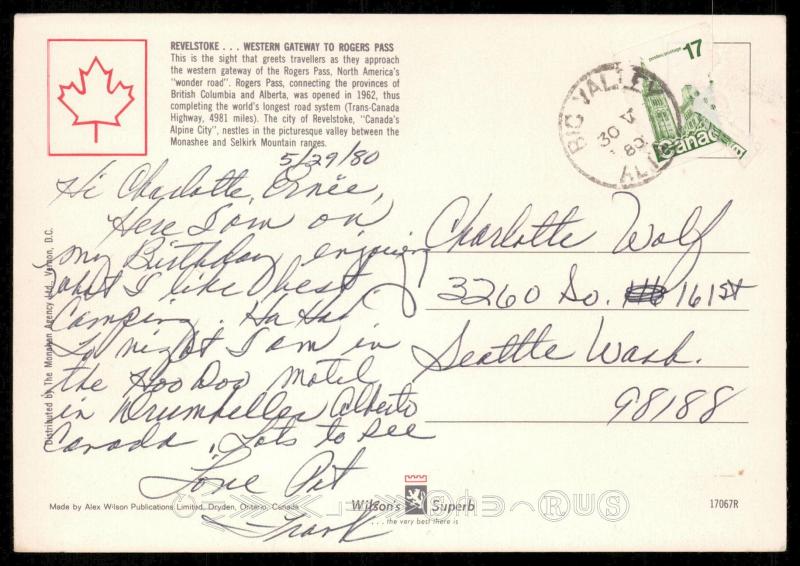 REVELSTOKE . . . WESTERN GATEWAY TO ROGERS PASS
This is the sight that greets travellers as they approach
the western gateway of the Rogers Pass, North America's
"wonder road". Rogers Pass, connecting the provinces of
British Columbia and Alberta, was opened in 1962, thus
completing the world's longest road system (Trans-Canada
Highway, 4981 miles). The city of Revelstoke, "Canada's
Alpine City", nestles in the picturesque valley between the
Monashee and Selkirk Mountain ranges.
5/29/80
Hi Charlotte, Ernie,
Here I am on
my Birthday enjoying
what I like best
Camping. Ha Ha
To night I am in
the Hoo Doo Motel
in Drumheller Alberta
Canada. Lots to see
Love Pat
Frank
Distributed by The Monahan Agency Ltd., Vernon, B.C.
17
Canada
BIG VALLEY
30 V
80
Charlotte Wolf
3260 So. 161st
Seattle Wash.
98188
Made by Alex Wilson Publications Limited, Dryden, Ontario, Canada
Wilson's Superb
. . . the very best there is
17067R
RUS